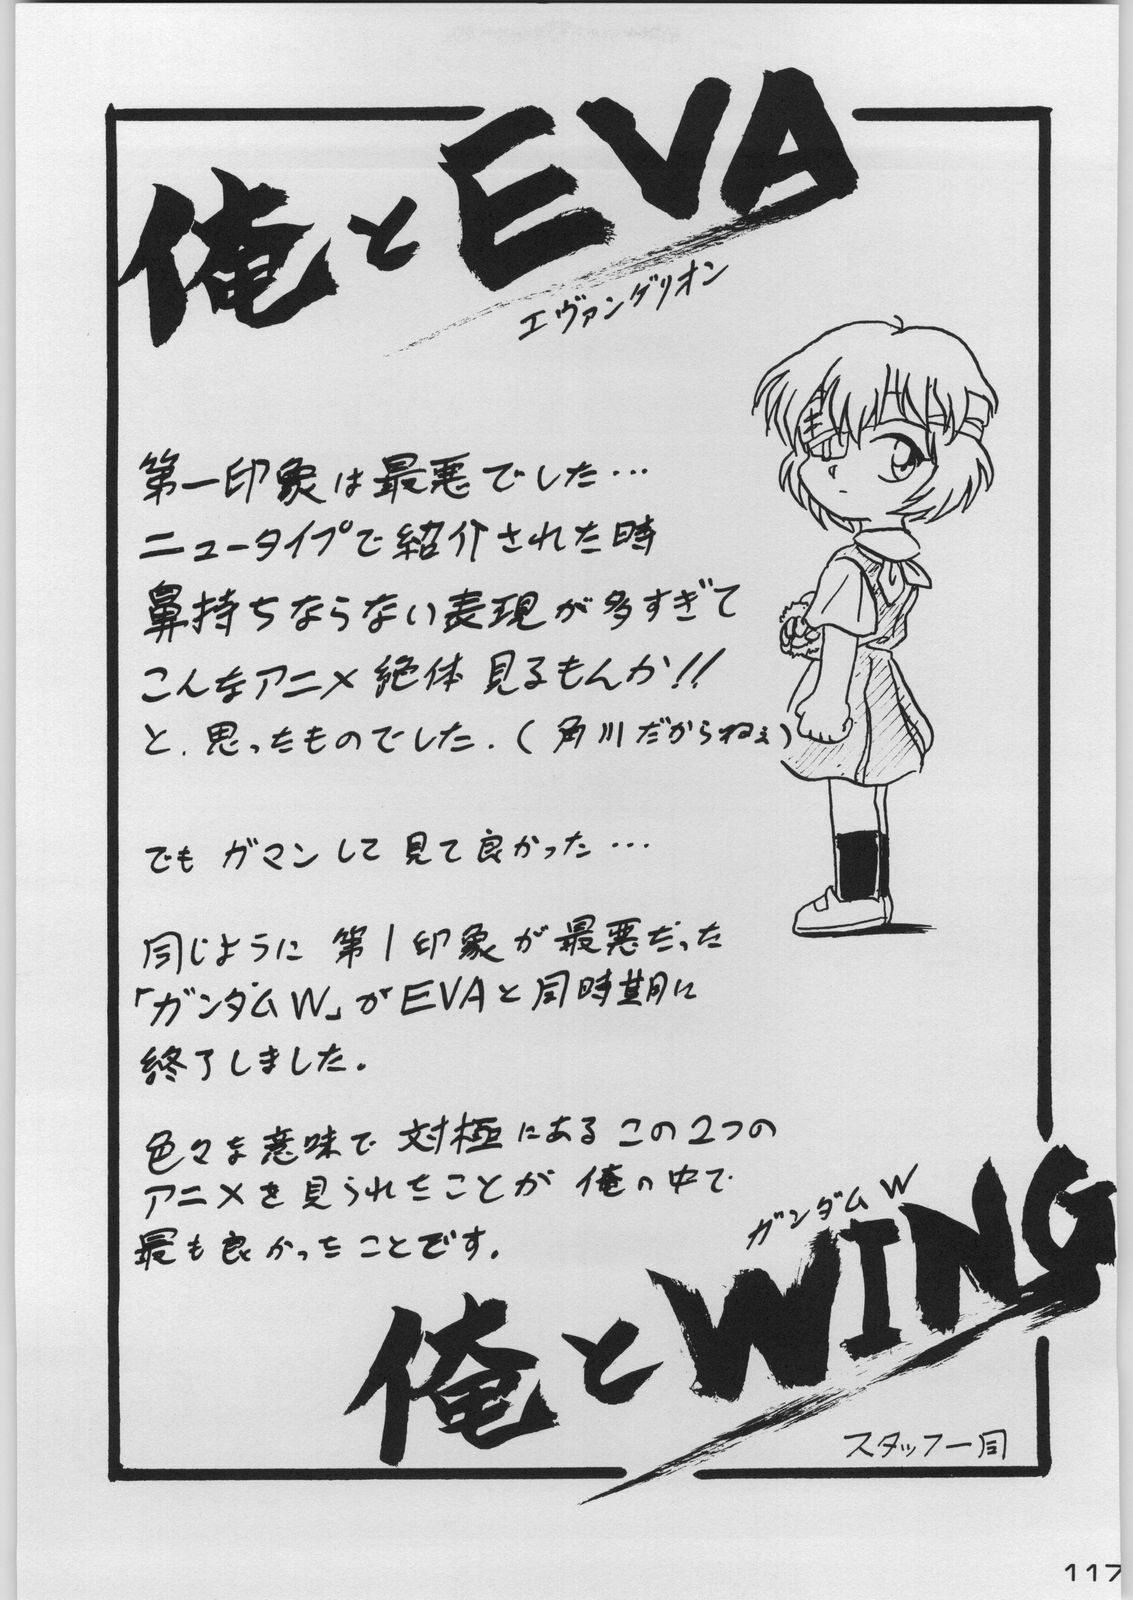 俺とEVA
エヴァンゲリオン
第一印象は最悪でした…
ニュータイプで紹介された時
鼻持ちならない表現が多すぎて
こんなアニメ絶体見るもんか!!
と、思ったものでした.(角川だからねぇ)
でもガマンして見て良かった…
同じように第1印象が最悪だった
「ガンダムW」がEVAと同時期に
終了しました。
色々な意味で対極にあるこの2つの
アニメを見られたことが俺の中で
最も良かったことです。
ガンダムW
俺とWING
スタッフ一同
117